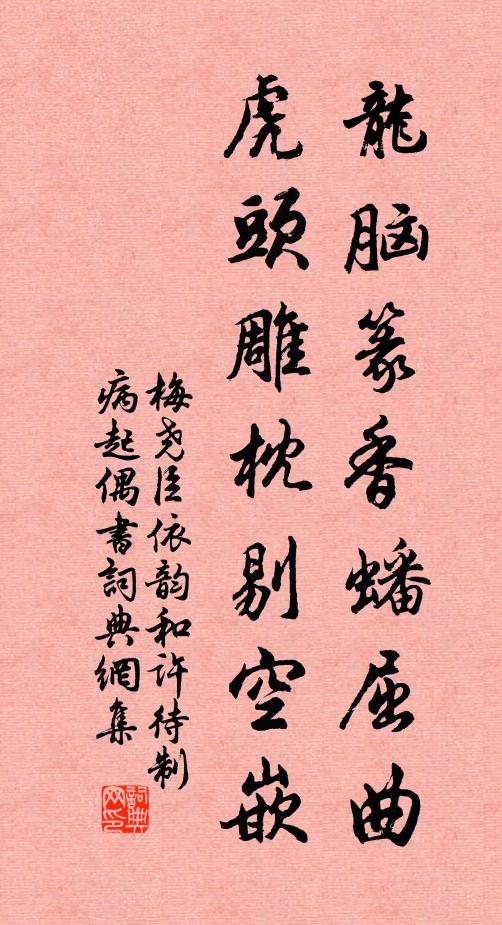 龍脑篆香蟠屈曲
虎頭雕枕剔空嵌
梅尧臣依韵和许待制
病起偶書詞典網集
詞典网印